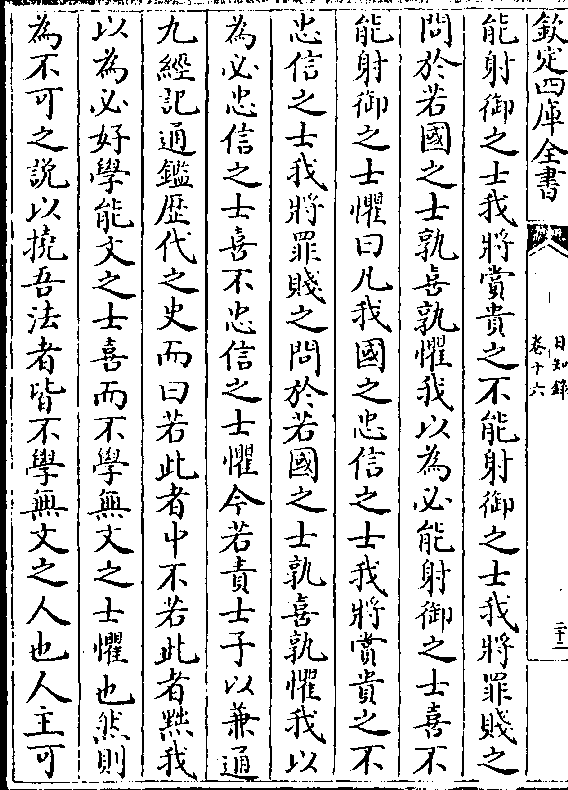 欽定四庫全書
日知錄
卷十六
二十二
能射御之士我將賞貴之不能射御之士我將罪賤之
問於若國之士孰喜孰懼我以為必能射御之士喜不
能射御之士懼曰凡我國之忠信之士我將賞貴之不
忠信之士我將罪賤之問於若國之士孰喜孰懼我以
為必忠信之士喜不忠信之士懼今若責士子以兼通
九經記通鑑歴代之史而曰若此者中不若此者黜我
以為必好學能文之士喜而不學無文之士懼也然則
為不可之說以撓吾法者皆不學無文之人也人主可